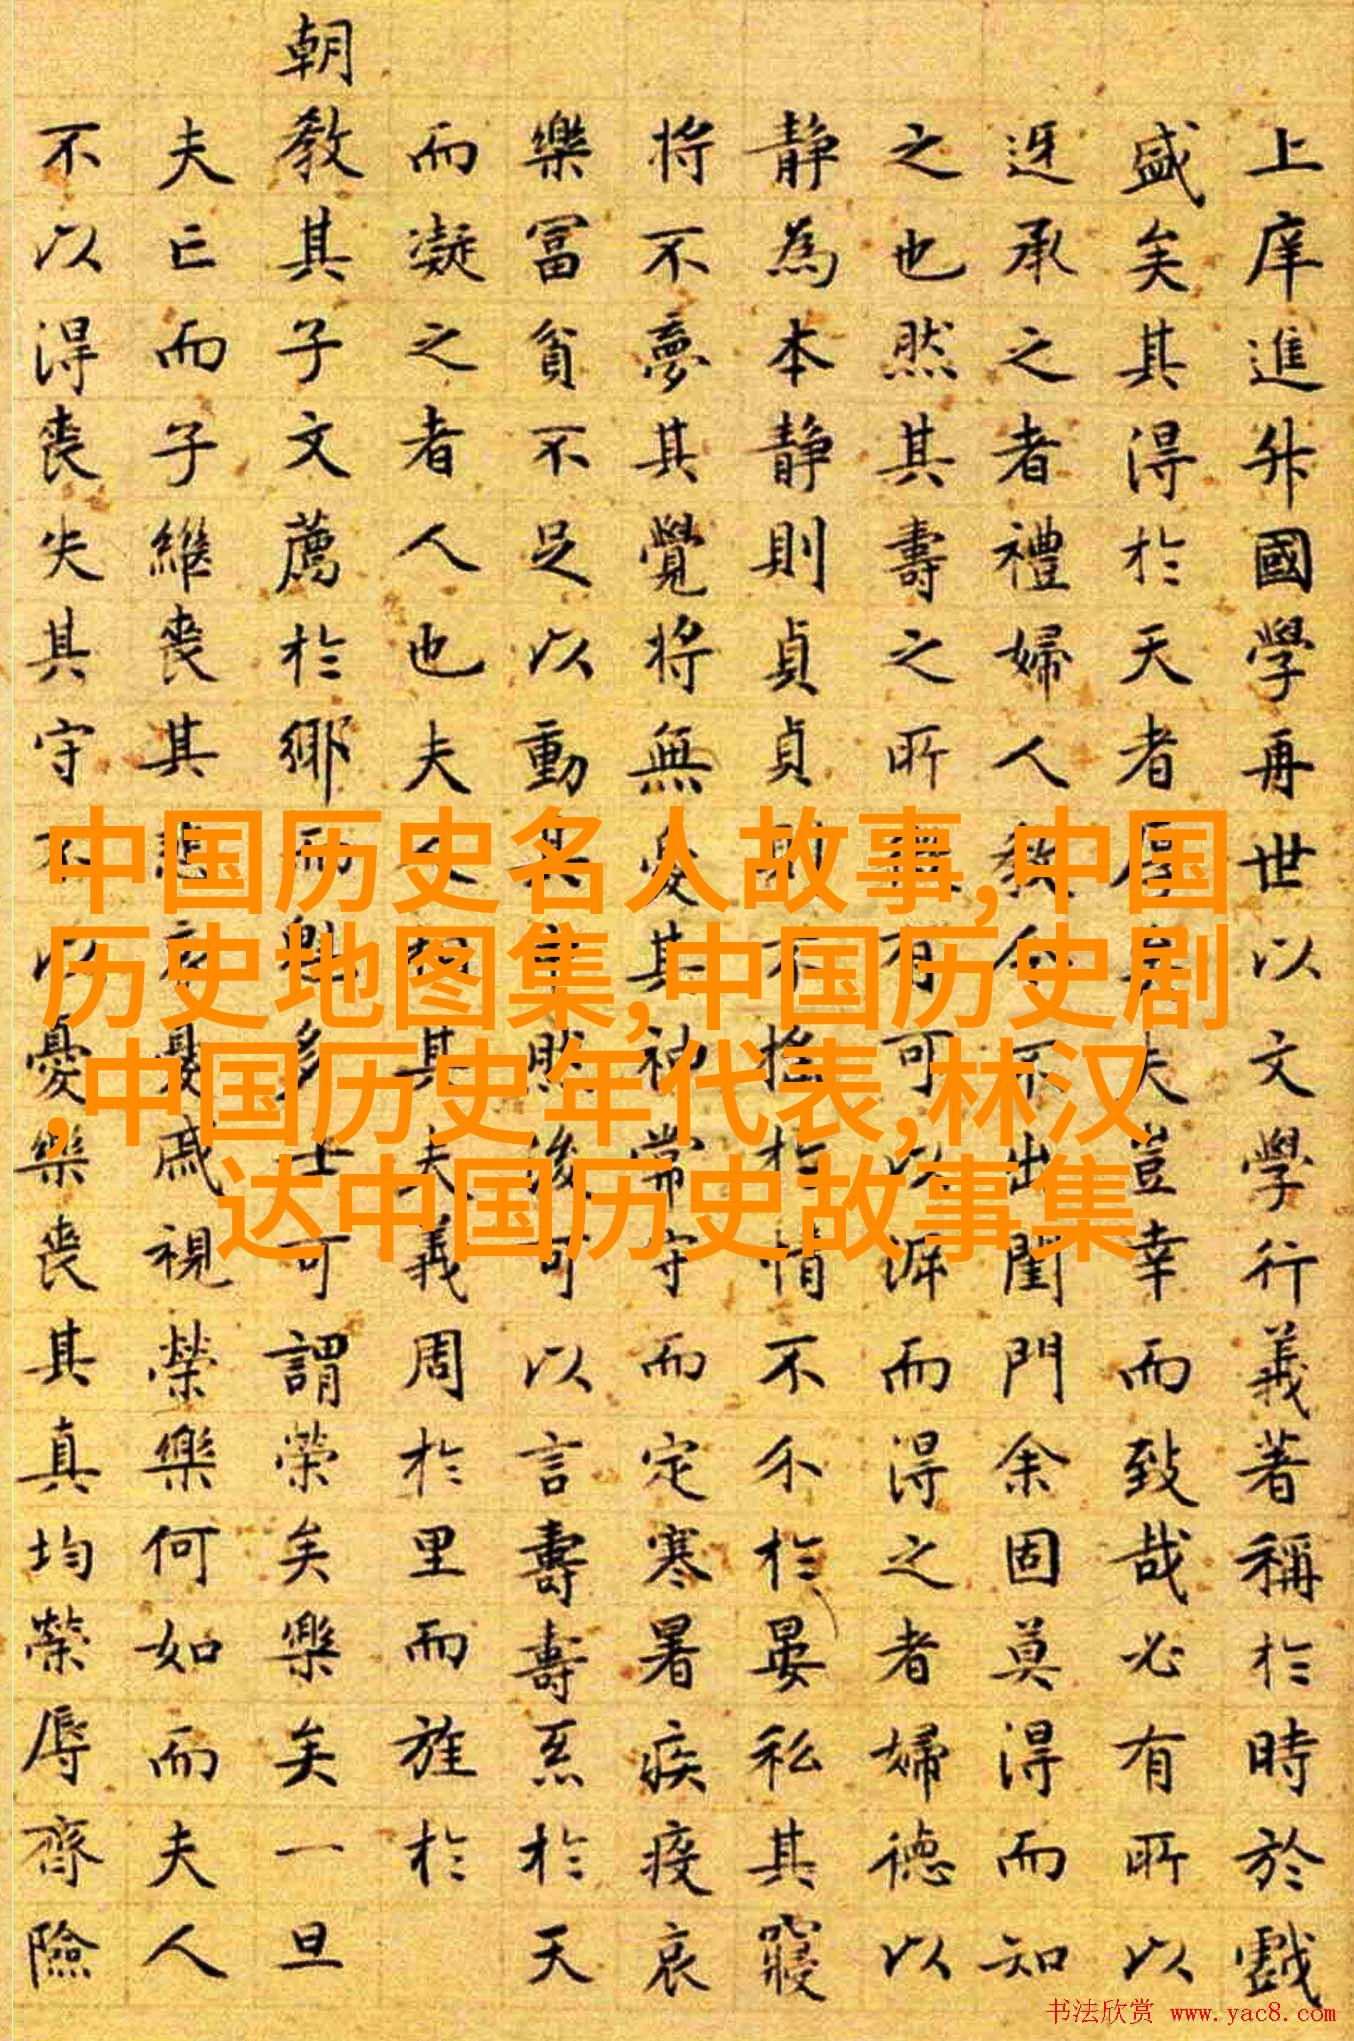 上庠進升國學再世以文學行義著稱於時於戲
盛矣其得於天者厚矣夫豈幸而致哉必有所以
迓承之者禮婦人教令不出閨門余固莫得而知
之也然其壽之所有可以涯而得之者婦德以
静為本静則貞貞則不撓於情不尒於晏私其寢
將不夢其覺將無憂其神常守而定寒暑疾疫哀
樂冨貧不足以動其中然後可以言壽壽烝於天
而凝之者人也夫人相其夫義周於里而旌於
朝教其子文薦於鄉而魁多士可謂榮矣樂矣一旦
夫亡而子繼喪其悲哀憂戚視榮樂何如而夫人
不以得喪失其守不以憂樂喪其真均榮辱齊險
中国历史名人故事,中国
历史地图集,中国历史剧
,中国历史年代表,林汉
达中国历史故事集
书法欣赏 www.yac8.com